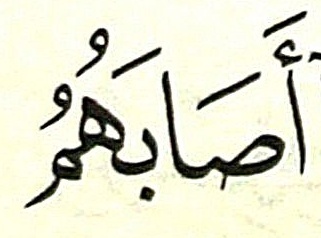 أَصَابَهُمُ